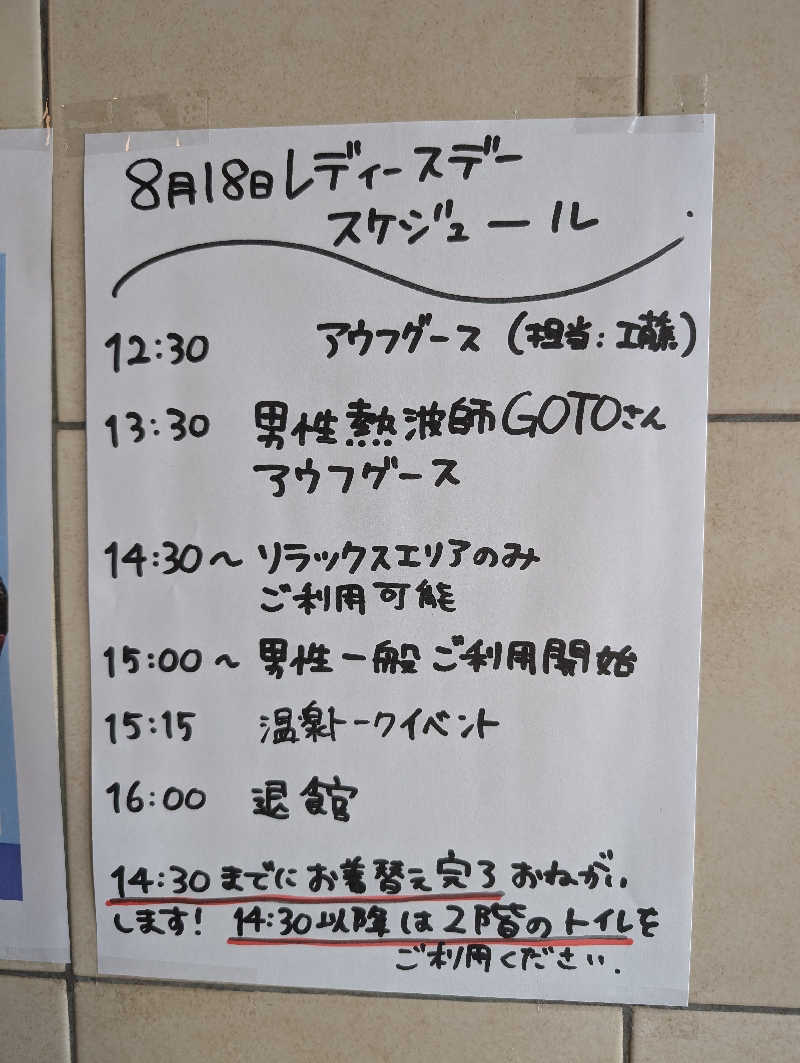 8月18日レディースデー
スケジュール
12:30 アウフグース (担当:工藤)
13:30 男性熱波師GOTOさん
アウフグース
14:30~ リラックスエリアのみ
ご利用可能
15:00~ 男性一般ご利用開始
15:15 温楽トークイベント
16:00 退館
14:30までにお着替え完了おねがい
します! 14:30以降は2階のトイレを
ご利用ください.